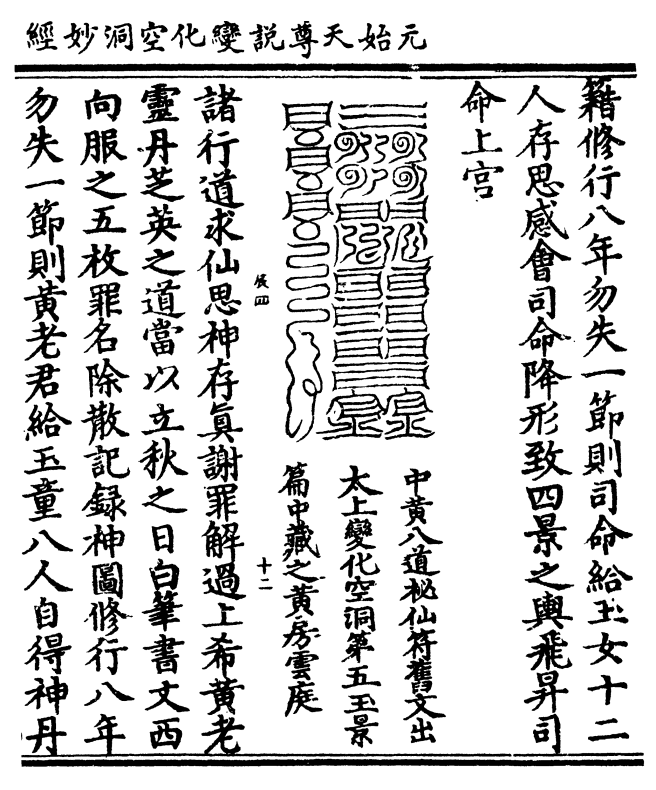 元始天尊説變化空洞妙經
籍修行八年勿失一節則司命給玉女十二
人存思感會司命降形致四景之輿飛昇司
命上宮
中黄八道祕仙符舊文出
太上變化空洞第五玉景
篇中藏之黄房雲庭
辰四
十二
諸行道求仙思神存眞謝罪解過上希黄老
靈丹芝英之道當以立秋之日白筆書文西
向服之五枚罪名除散記録神圖修行八年
勿失一節則黄老君給玉童八人自得神丹